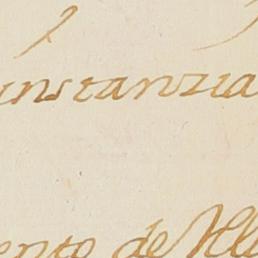 instanzia
ento de Ill